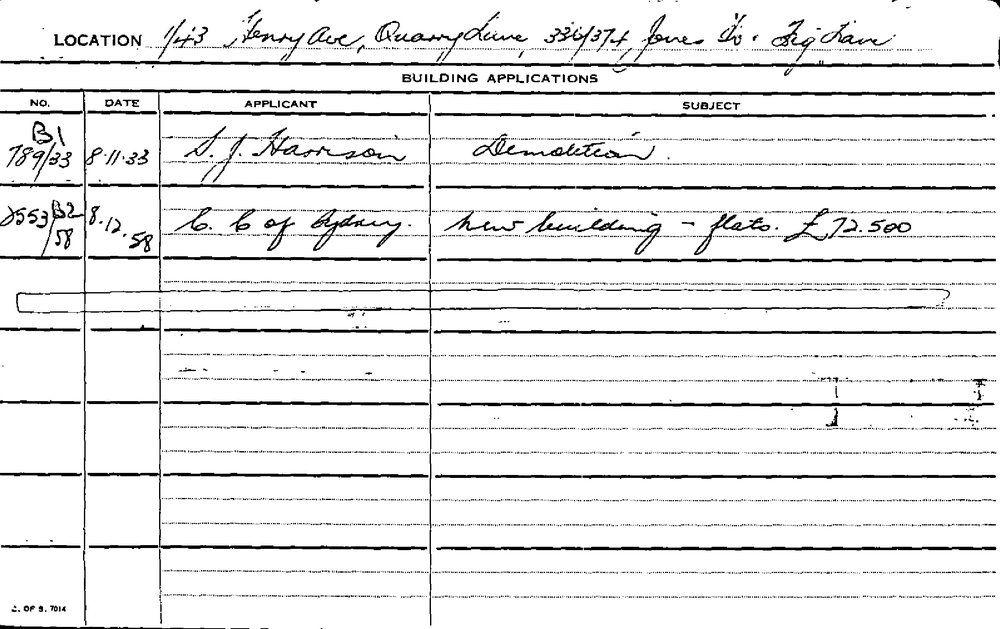 LOCATION 1/43 Henry Ave, Quarry Lane, 330/374 Jones St. Fig Lane
BUILDING APPLICATIONS
NO. DATE APPLICANT SUBJECT
B1
789/33 8.11.33 S. J. Harrison Demolition.
2553/58 B2 8.12.58 C. C of Sydney. New building - flats. £72.500
C. OF S. 7014